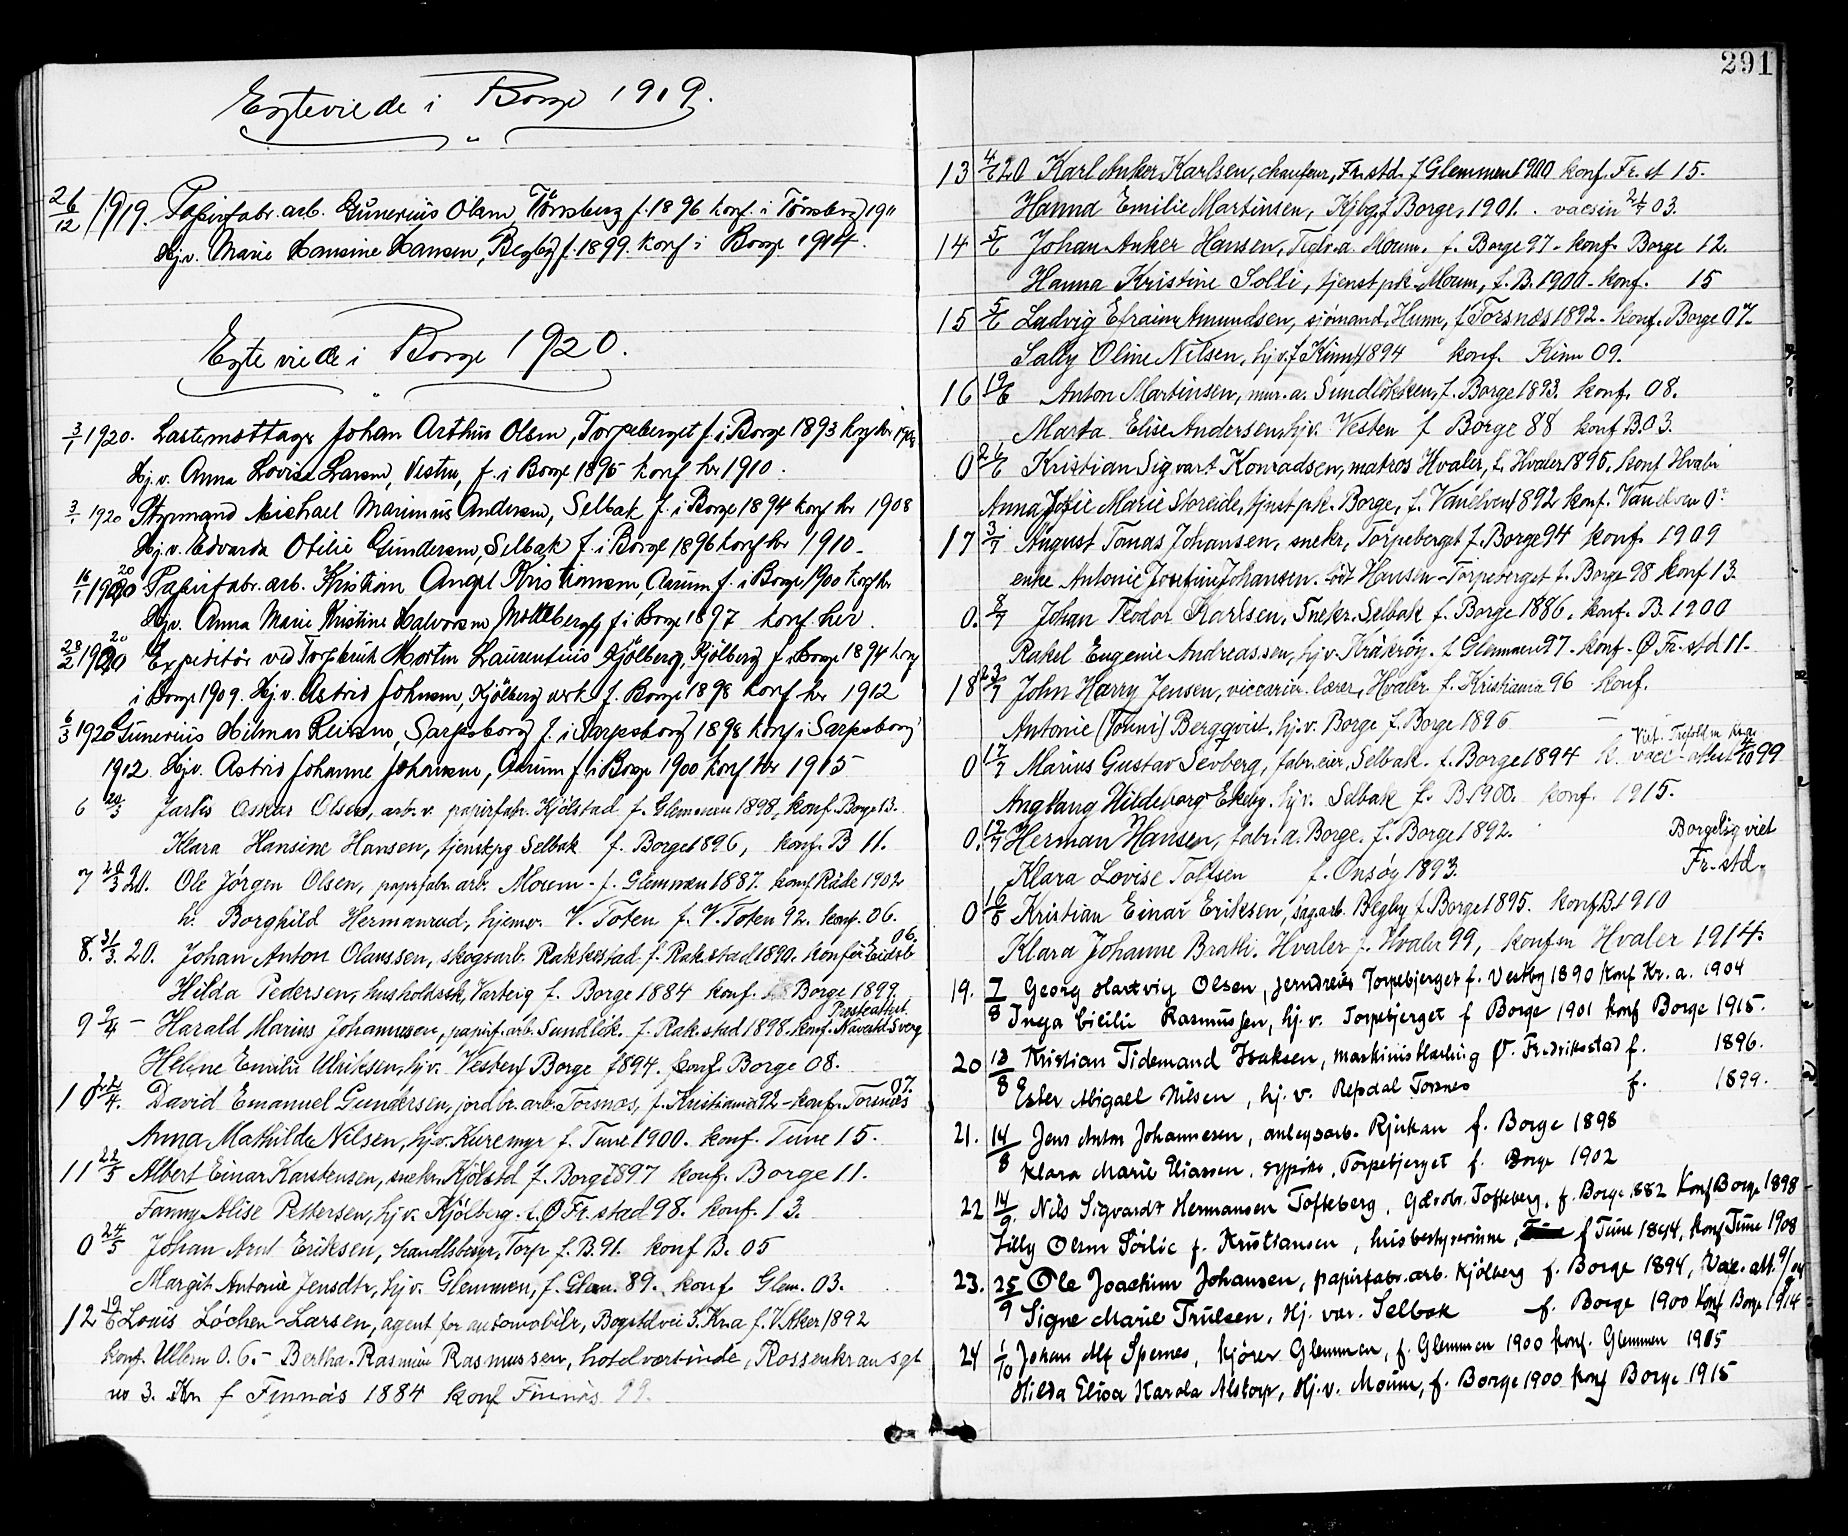 Egteviede i Borge 1919.
26/12 1919. Papirfabr. arb. Gunerius Olsen, Tönsberg f. 1896 konf. i Tönsberg 1911
Hj.v. Marie Hansine Hansen, Begby f. 1899. konf i Borge 1914.
Egteviede i Borge 1920.
3/1 1920. Lastemottager Johan Arthur Olsen, Torpeberget f. i Borge 1893 konf her 1908
Hj.v. Anna Lovise Larsen, Vesten, f. i Borge 1895 konf her 1910.
3/1 1920 Styrmand Michael Marinius Andersen, Selbak f. i Borge 1894 konf her 1908
Hj.v. Edvarda Otilie Gundersen, Selbak f. i Borge 1896 konf her 1910.
16/1 1920 Papirfabr. arb. Kristian Angel Kristiansen, Aarum f. i Borge 1900 konf her
Hj.v. Anna Marie Kristine Halvorsen Moklebergf f i Borge 1897 konf her.
28/2 1920 Expeditör ved Torpbruk Morten Laurentius Kjölberg, Kjölberg f i Borge 1894 konf
i Borge 1909. Hj.v. Astrid Johnsen, Kjölberg f. Borge 1898 konf her 1912
6/3 1920 Gunerius Hilmar Sarpsborg f. i Sarpsborg 1898 konf i Sarpsborg
1912 Hj.v. Astrid Johanne Johansen, Aarum f i Borge 1900 konf her 1915
6 20/3 Oskar Olsen, arb. v. papirfabr. Kjölstad f. Glemmen 1898, konf. Borge 13.
Klara Hansine Hansen, tjenstpg Selbak f. Borge 1896, konf. B 11.
7 28/3 20. Ole Jörgen Olsen, papirfabr. arb. Moum - f. Glemmen 1887. konf Råde 1902
h. Borghild Hermanrud, hjemv. V. Toten f. V. Toten 92. konf. 06.
8. 31/3. 20. Johan Anton Olaussen, skogsarb. Rakkestad f. Rak.stad 1890. konf. i Eidsb 06.
Hilda Pedersen, husholdsk, Varteig f. Borge 1884 konf. Borge 1899
9 9/4 - Harald Marius Johannesen, papirf. arb. Sundlök. f. Rak.stad 1898. konf. Presteattest.
Helene Emilie Ulriksen, hj.v. Vesten f Borge 1894. konf. Borge 08.
10 24/4. David Emanuel Gundersen, jordbr. arb. Torsnæs, f. Kristiania 92 - konf. Torsnæs 07.
Anna Mathilde Nilsen, hj.v. Kuremyr f. Tune 1900. konf. Tune 15.
11 22/5 Albert Einar Karstensen, snekr. Kjölstd f. Borge 1897 konf. Borge 11.
Fanny Alise Pettersen, hj.v. Kjölberg. f. Ø Fr. stad 98. konf. 13.
0 24/5 Johan Arnt Eriksen, handlsbetj, Torp f. B. 91. konf B. 05
Margit Antonie Jensdtr, hj.v. Glemmen, f. Glem. 89. konf. Glem. 03.
12 19/6 Louis Löchen-Larsen, agent for automobilr, Bogstdvei 3. Kr.a f. V. Aker 1892
konf. Ullern 0.6. - Bertha Rasmine Rasmussen, hotelværtinde, Rossenkransgt
no 3. Kr f Finnås 1884 konf Finnås 99.
291
13 4/6 20 Karl Anker Karlsen, chaufeur, Fr.std. f Glemmen 1900 konf. Fr. st 15.
Hanna Emilie Martinsen, Kjbg, f Borge, 1901. vacsin 03.
14 5/6 Johan Anker Hansen, Moum. f. Borge 97 - konf. Borge 12.
Hanna Kristine Solli, tjenstpk - Moum, f. B. 1900 - konf. 15
15 5/6 Ludvig Efraim Amundsen, sjömand, Hunn, f. Torsnæs 1892 - konf. Borge 07.
Sally Oline Nilsen, hj.v. f Kinn 1894 konf. Kinn 09.
16 19/6 Anton Martinsen, mur. a. Sundlökken, f. Borge 1893. konf. 08.
Marta Elise Andersen, hj.v. Vesten f Borge 88 konf B. 03.
0 26/6 Kristian Sigvart Konradsen, matros Hvaler, f. Hvaler 1895, konf Hvaler
Anna Josefie Marie Storeide, tjnst.pk. Borge, f. Vanelven 1892 konf. Vanelven
17 3/7 August Tomas Johansen, snekr, Torpeberget f. Borge 94 konf. 1909
enke Antonie Josefine Johansen. födt Hansen - Torpeberget f. Borge 98 konf 13.
0. 8/7 Johan Teodor Karlsen, Snekr. Selbak f. Borge 1886. konf. B. 1900
Rakel Eugenie Andreassen, hj.v. Kråkröy. f. Glemmen 97 - konf - Ø Fr. std 11.
18 23/7 John Harry Jensen, viccarier. lærer, Hvaler f. Kristiania 96 konf.
Antonie (Tonni) Bergqvist. hj.v. Borge f. Borge 1896 —
0 17/7 Marius Gustav Sevberg, fabr.eier, Selbak. f. Borge 1894 k. vacc. attest 99
Angstang Hildeborg Ekeby. hj.v. Selbak f. B. 1900. konf. 1915.
0. 17/7 Herman Hansen, fabr. a. Borge. f. Borge 1892. Borgelig viet
Klara Lovise Toltsen f. Onsöy 1893. Fr. std.
0 16/5 Kristian Einar Eriksen, sagarb. Begby f. Borge 1895. konf B. 1910
Klara Johanne Bratli. Hvaler f. Hvaler 99, konf. Hvaler 1914.
19. 7/8 Georg Hartvig Olsen, jerndreier Torpebjerget f. Vestby 1890 konf Kr. a. 1904
Inga Cicilie Rasmussen, hj.v. Torpebjerget f Borge 1901 konf Borge 1915.
20 13/8 Kristian Tidemand Isaksen, Ø. Fredriksstad f. 1896.
Ester Abigael Nilsen, hj.v. Repdal Torsnes f. 1899.
21. 14/8 Jens Anton Johannesen, anlegsarb. Rjukan f. Borge 1898
Klara Marie Eliassen, sypike, Torpebjerget f. Borge 1902
22 14/9. Nils Sigvardt Hermansen Tofteberg, Gdrbr. Tofteberg, f. Borge 1882 konf Borge 1898
Lilly Olsen f. Kristiansen, husbestyrerinne, f Tune 1894, konf Tune 1908
23. 25/9 Ole Joachim Johansen, papirfabr.arb. Kjölberg f. Borge 1894, Vac. att.
Signe Marie Trulsen, Hj. vær. Selbak f. Borge 1900 konf Borge 1914
24 1/10 Johan Alf Spernes, kjörer Glemmen, f. Glemmen 1900 konf. Glemmen 1915
Hilda Elisa Karola Alstorp, Hj.v. Moum, f. Borge 1900 konf Borge 1915